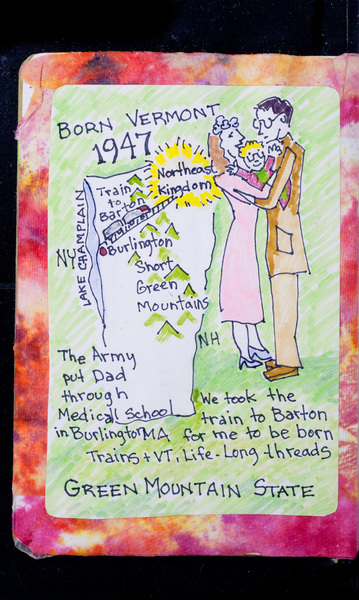 BORN VERMONT
1947
Northeast
Kingdom
Me
Train
to
Barton
LAKE CHAMPLAIN
NY
Burlington
Short
Green
Mountains
NH
The Army
put Dad
through
Medical School
in Burlington
MA
We took the
train to Barton
for me to be born
Trains + VT, Life-Long threads
GREEN MOUNTAIN STATE